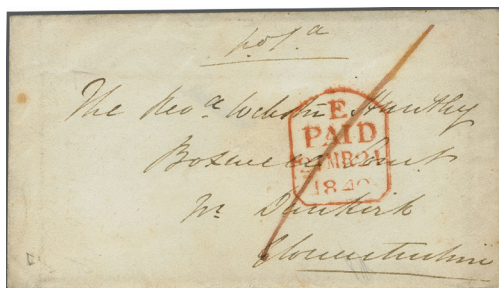 The Revd. Webster Huntley
Boxwell Court
Nr. Dunkirk
Gloucestershire
E
PAID
MR 21
1840